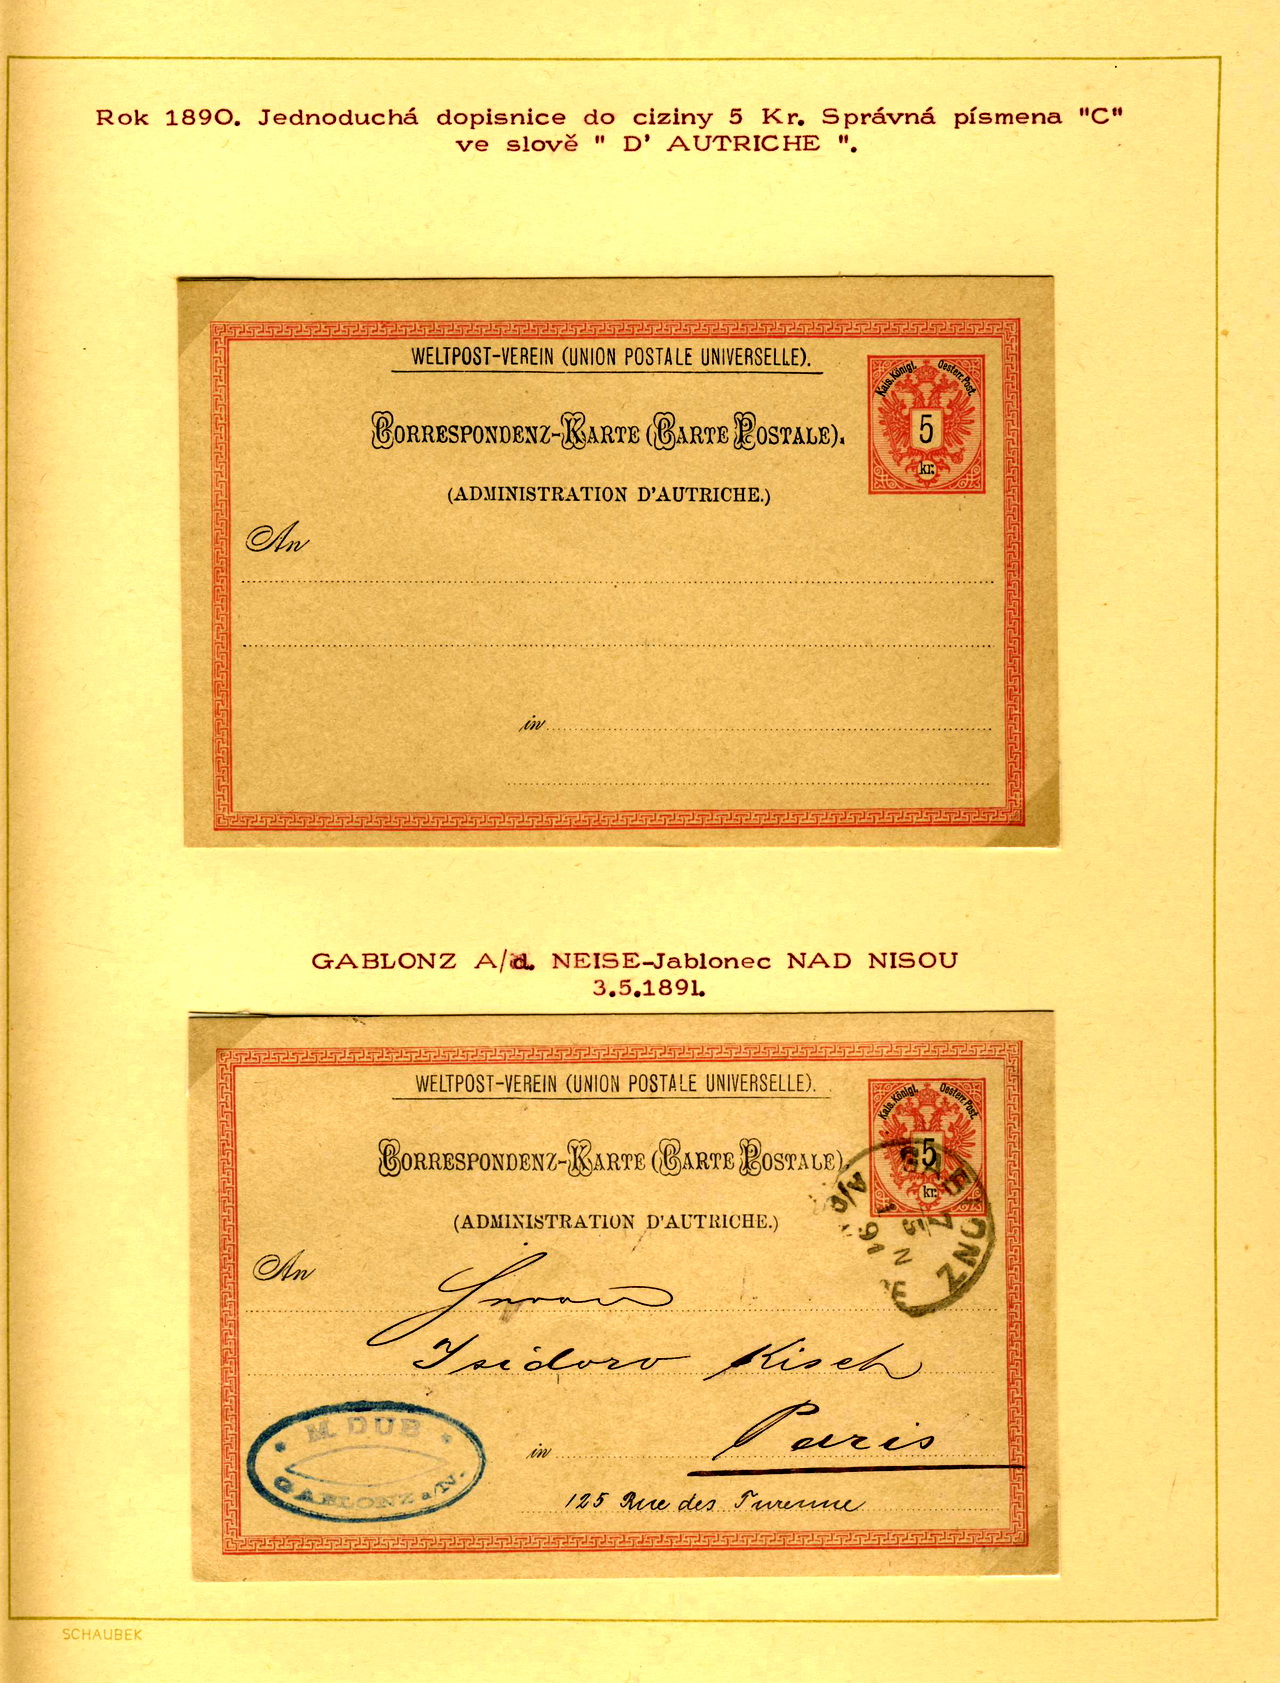 Rok 1890. Jednoduchá dopisnice do ciziny 5 Kr. Správná písmena "C"
ve slově " D' AUTRICHE ".
WELTPOST-VEREIN (UNION POSTALE UNIVERSELLE).
Kais. Königl. Oesterr. Post.
CORRESPONDENZ-KARTE (CARTE POSTALE).
5
kr.
(ADMINISTRATION D'AUTRICHE.)
An
in
GABLONZ A/d. NEISE-Jablonec NAD NISOU
3.5.1891.
WELTPOST-VEREIN (UNION POSTALE UNIVERSELLE).
Kais. Königl. Oesterr. Post.
CORRESPONDENZ-KARTE (CARTE POSTALE).
5
kr.
(ADMINISTRATION D'AUTRICHE.)
An
Isidoro Kisch
M. DUB
GABLONZ a/N.
in Paris
125 Rue des Turenne
SCHAUBEK